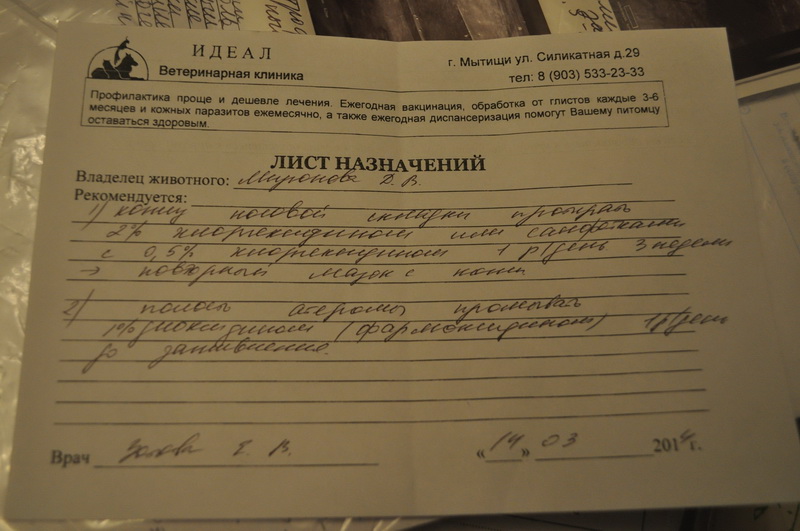 ИДЕАЛ
Ветеринарная клиника
г. Мытищи ул. Силикатная д.29
тел: 8 (903) 533-23-33
Профилактика проще и дешевле лечения. Ежегодная вакцинация, обработка от глистов каждые 3-6
месяцев и кожных паразитов ежемесячно, а также ежегодная диспансеризация помогут Вашему питомцу
оставаться здоровым.
ЛИСТ НАЗНАЧЕНИЙ
Владелец животного: Миронова Д. В.
Рекомендуется:
1) кожу носовой складки протирать
2% хлоргексидином или салфетками
с 0,5% хлоргексидином 1 р/день 3 недели
→ повторный мазок с кожи
2) полость атеромы промывать
1% диоксидином 1р/день
до заживления.
Врач Е. В.
«14» 03 2014г.